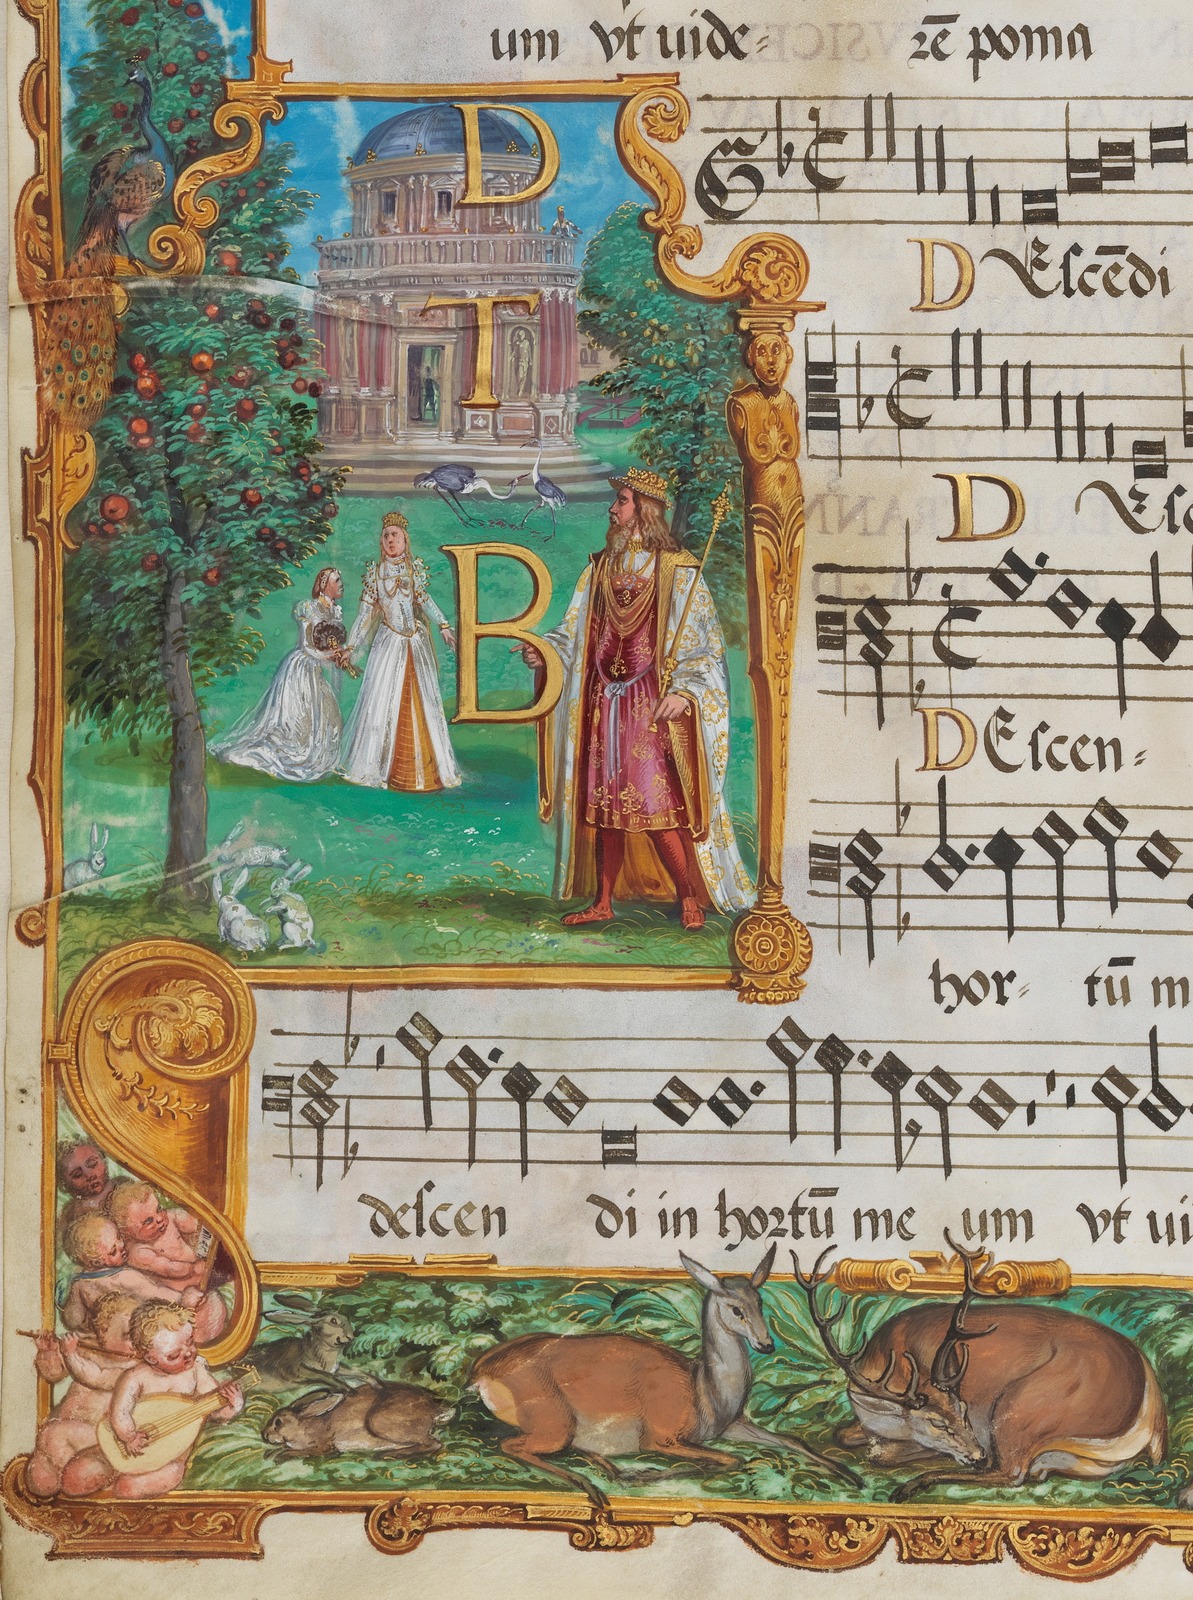 um vt uide= rē poma
D
T
B
DEscēdi
DEsc
DEscen=
hor= tū m
descen di in hortū me um vt ui